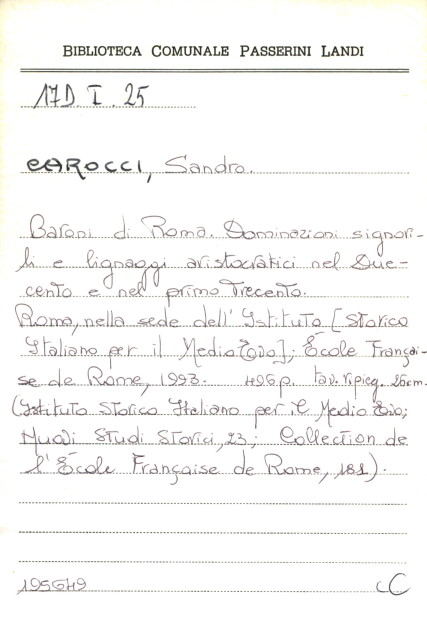 BIBLIOTECA COMUNALE PASSERINI LANDI
17D. I. 25
CAROCCI, Sandro.
Baroni di Roma. Dominazioni signori-
li e lignaggi aristocratici nel Due-
cento e nel primo Trecento.
Roma, nella sede dell'Istituto [Storico
Italiano per il Medio Evo]; École Françai-
se de Rome, 1993. 496p. tav. ripieg. 26cm.
(Istituto Storico Italiano per il Medio Evo;
Nuovi Studi Storici, 23; Collection de
l'École Française de Rome, 181).
195649
CC